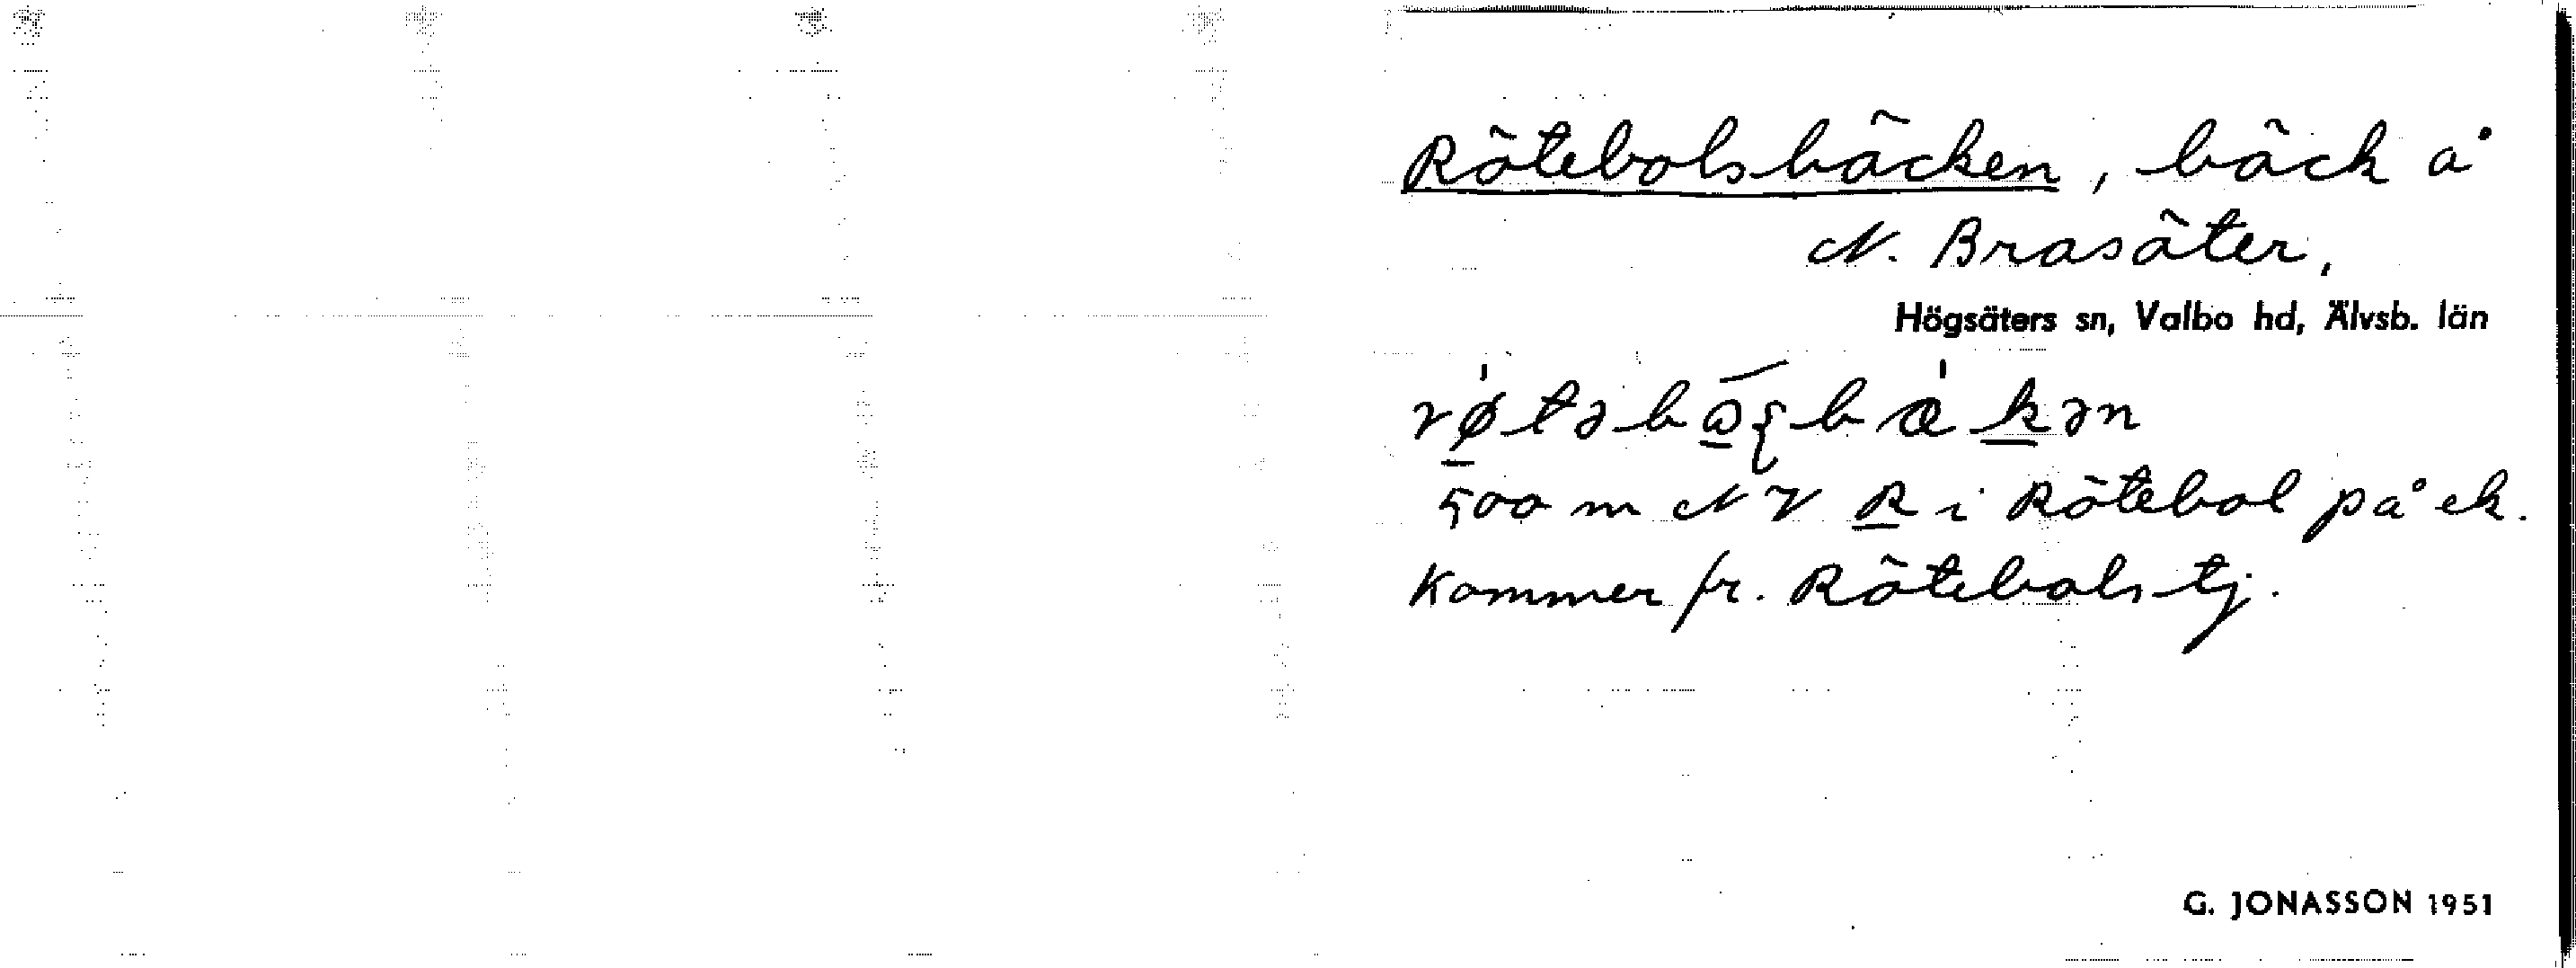 Rötebolsbäcken, bäck å
N. Brasäter,
Högsäters sn, Valbo hd, Älvsb. län
500 m NV R i Rötebol på ek.
Kommer fr. Rötebols tj.
G. JONASSON 1951